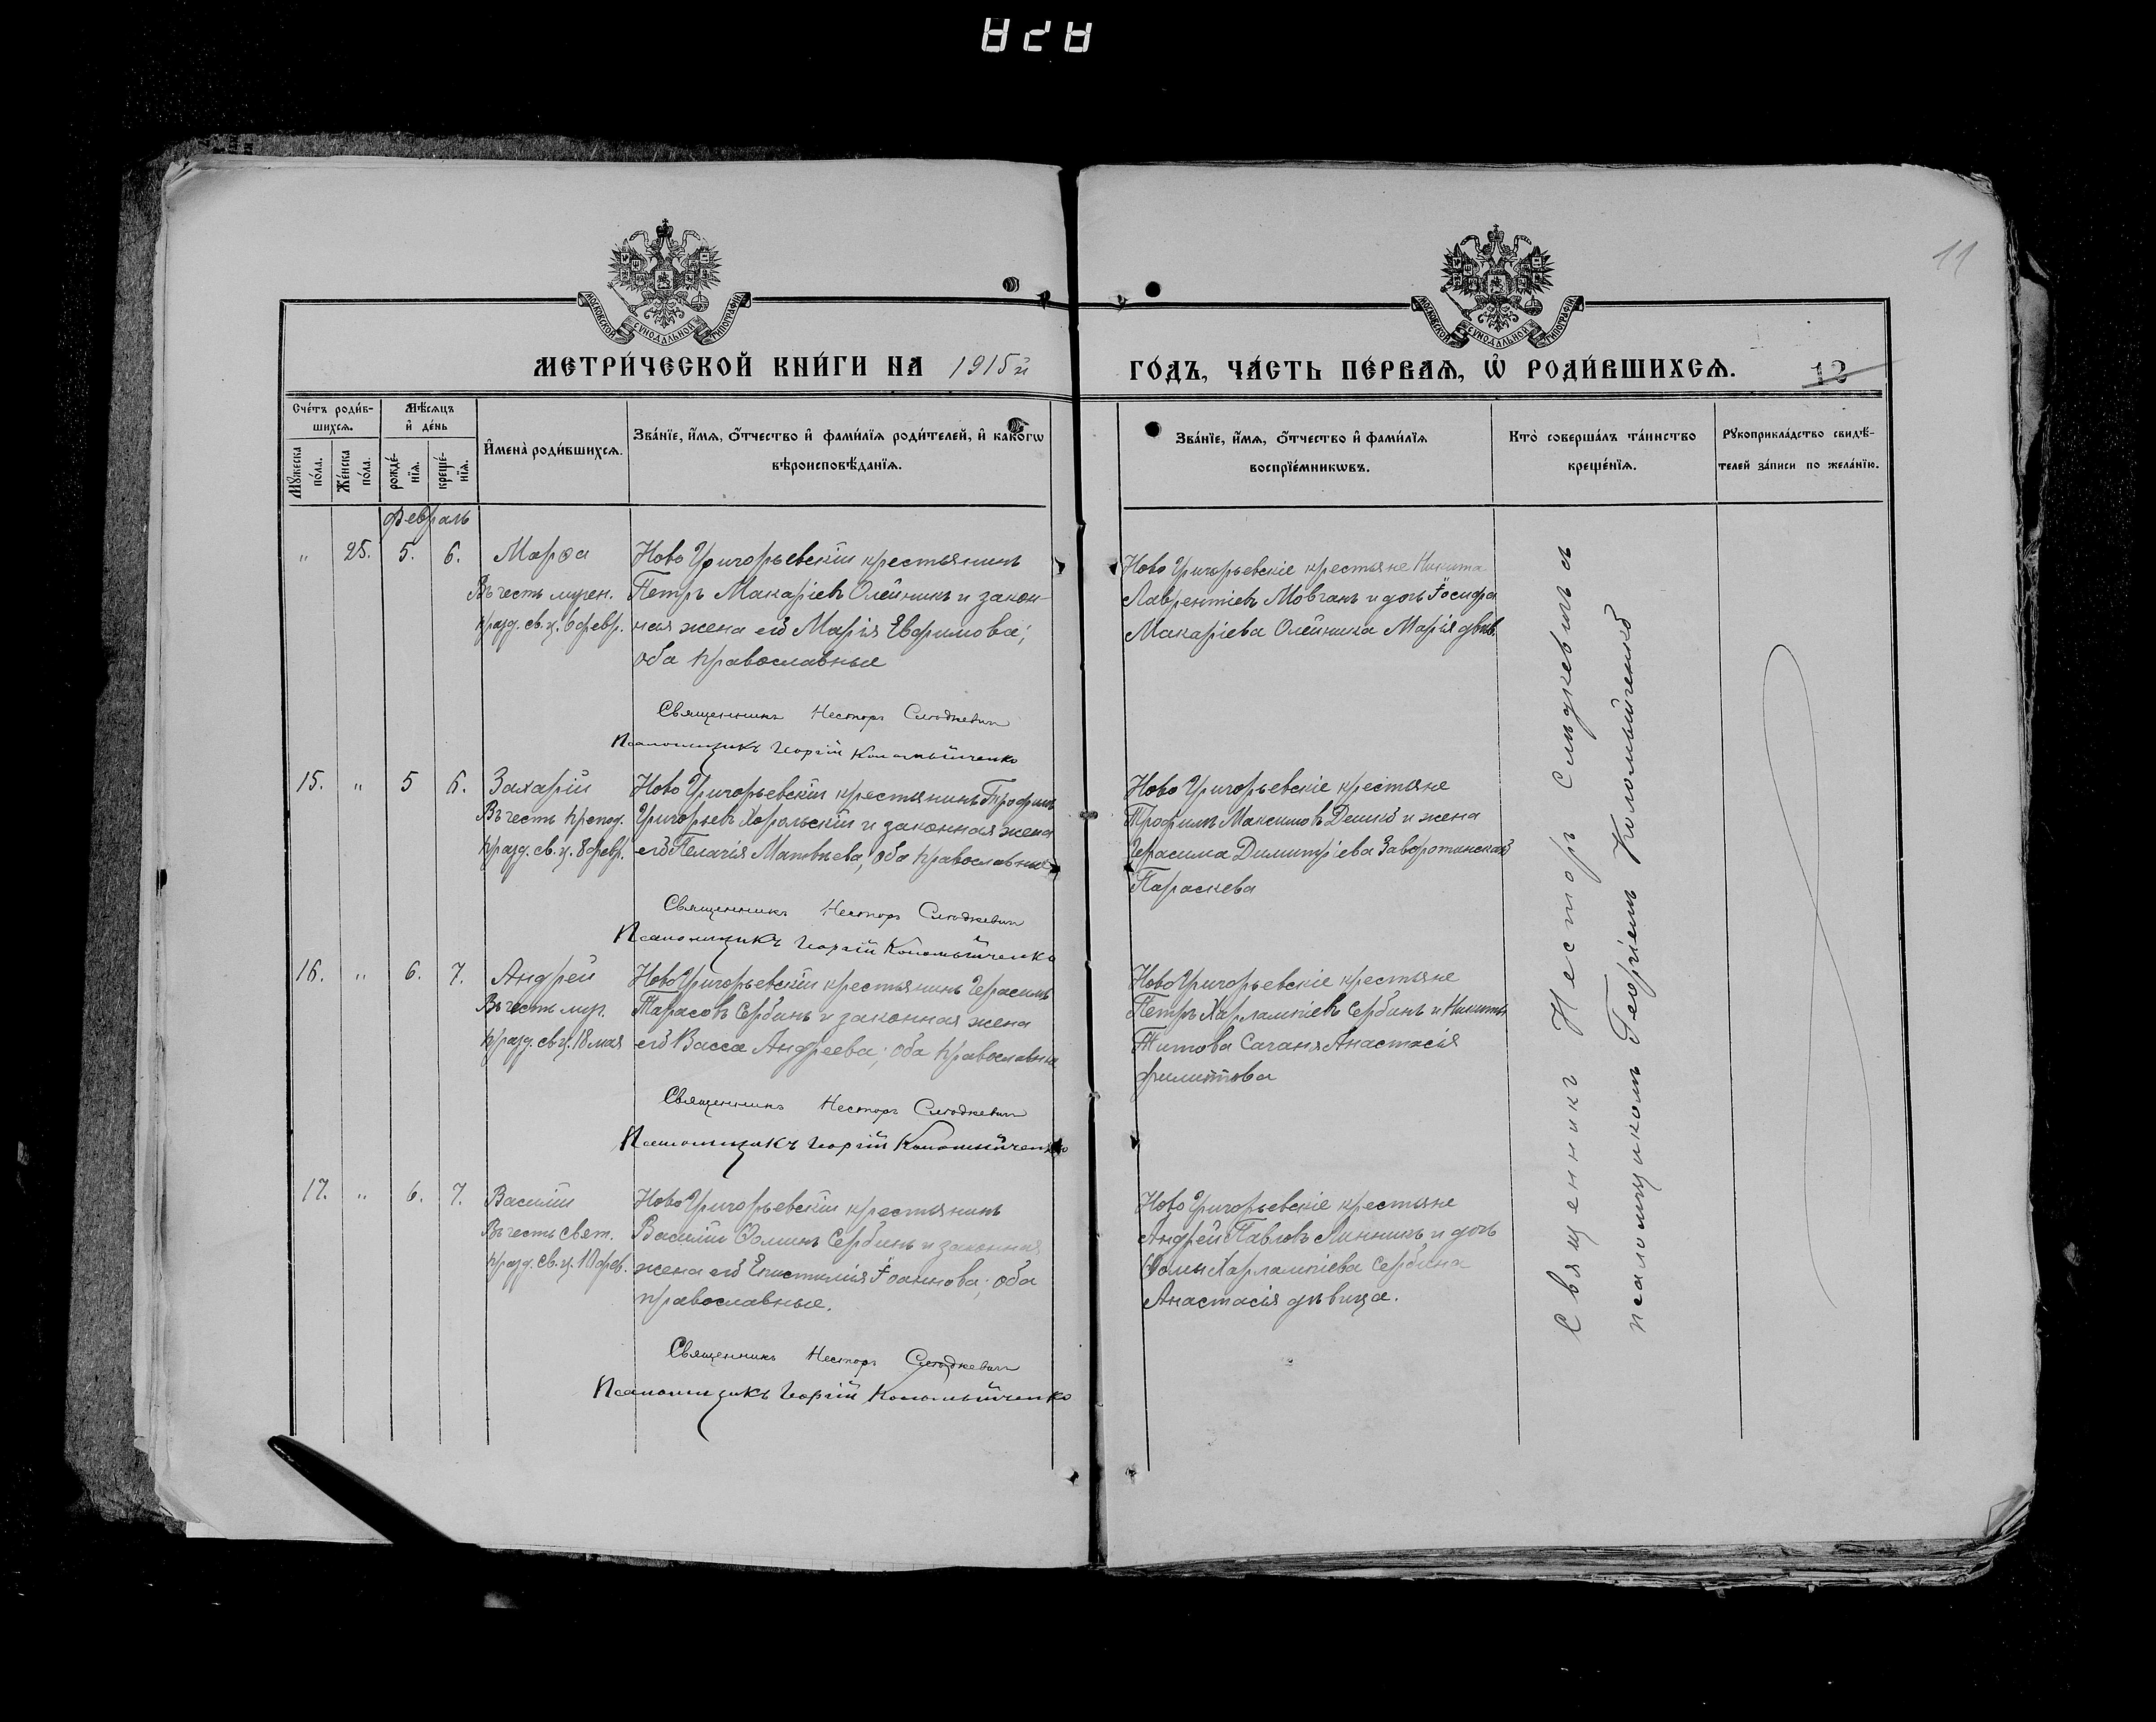 11
МОСКОВСКОЙ СѴНОДАЛЬНОЙ ТИПОГРАФІИ
МОСКОВСКОЙ СѴНОДАЛЬНОЙ ТИПОГРАФІИ
МЕТРИ́ЧЕСКОЙ КНИ́ГИ НА 1915й
ГО́ДЪ, ЧА́СТЬ ПЕ́РВАѦ, Ѡ҆ РОДИ́ВШИХСѦ. 12
Сче́тъ роди́в-
шихсѧ.
Мѣ́сѧцъ
и҆ де́нь
Мꙋ́жеска
по́ла.
Же́нска
по́ла.
рожде́-
нїѧ.
креще́-
нїѧ.
И҆мена̀ роди́вшихсѧ.
Зва́нїе, и҆́мѧ, ѻ҆́тчество и҆ фами́лїѧ роди́телей, и҆ како́гѡ
вѣроисповѣ́данїѧ.
Зва́нїе, и҆́мѧ, ѻ҆́тчество и҆ фами́лїѧ
воспрїе́мникѡвъ.
Кто̀ соверша́лъ та́инство
креще́нїѧ.
Рꙋкоприкла́дство свидѣ́-
телей за́писи по жела́нїю.
Февраль
" 25. 5. 6. Марѳа
Въ честь мучен.
празд. св. ц. 6 февр.
Ново Григорьевскій крестьянинъ
Петръ Макаріевъ Олейникъ и закон-
ная жена его Марія Евфимова;
оба православные
Священникъ Несторъ Слюдкевичъ
Псаломщикъ Георгій Коломыйченко
Ново Григорьевскіе крестьяне Никита
Лаврентіевъ Мовчанъ и дочь Іосифа
Макаріева Олейника Марія двив.
15. " 5 6. Захарій
Въ честь препод.
празд. св. ц. 8 февр.
Ново Григорьевскій крестьянинъ Трофимъ
Григорьевъ Хорольскій и законная жена
его Пелагія Матвѣева; оба православные
Священникъ Несторъ Слюдкевичъ
Псаломщикъ Георгій Коломыйченко
Ново Григорьевскіе крестьяне
Трофимъ Максимовъ Дешко и жена
Герасима Димитріева Заворотинскаго
Параскева
16. " 6. 7. Андрей
Въ честь муч.
празд. св. ц. 18 мая
Ново Григорьевскій крестьянинъ Герасимъ
Тарасовъ Сербинъ и законная жена
его Васса Андреева; оба православны
Священникъ Несторъ Слюдкевичъ
Псаломщикъ Георгій Коломыйченко
Ново Григорьевскіе крестьяне
Петръ Харлампіевъ Сербинъ и Никиты
Титова Сагана Анастасія
Филиппова
17. " 6. 7. Василій
Въ честь свят.
празд. св. ц. 10 фев.
Ново Григорьевскій крестьянинъ
Василій Ѳоминъ Сербинъ и законная
жена его Епистимія Іоаннова; оба
православные.
Священникъ Несторъ Слюдкевичъ
Псаломщикъ Георгій Коломыйченко
Ново Григорьевскіе крестьяне
Андрей Павловъ Линникъ и дочь
Ѳомы Харлампіева Сербина
Анастасія дѣвица.
Священникъ Несторъ Слюдкевичъ съ
псаломщикомъ Георгіемъ Коломыйченко